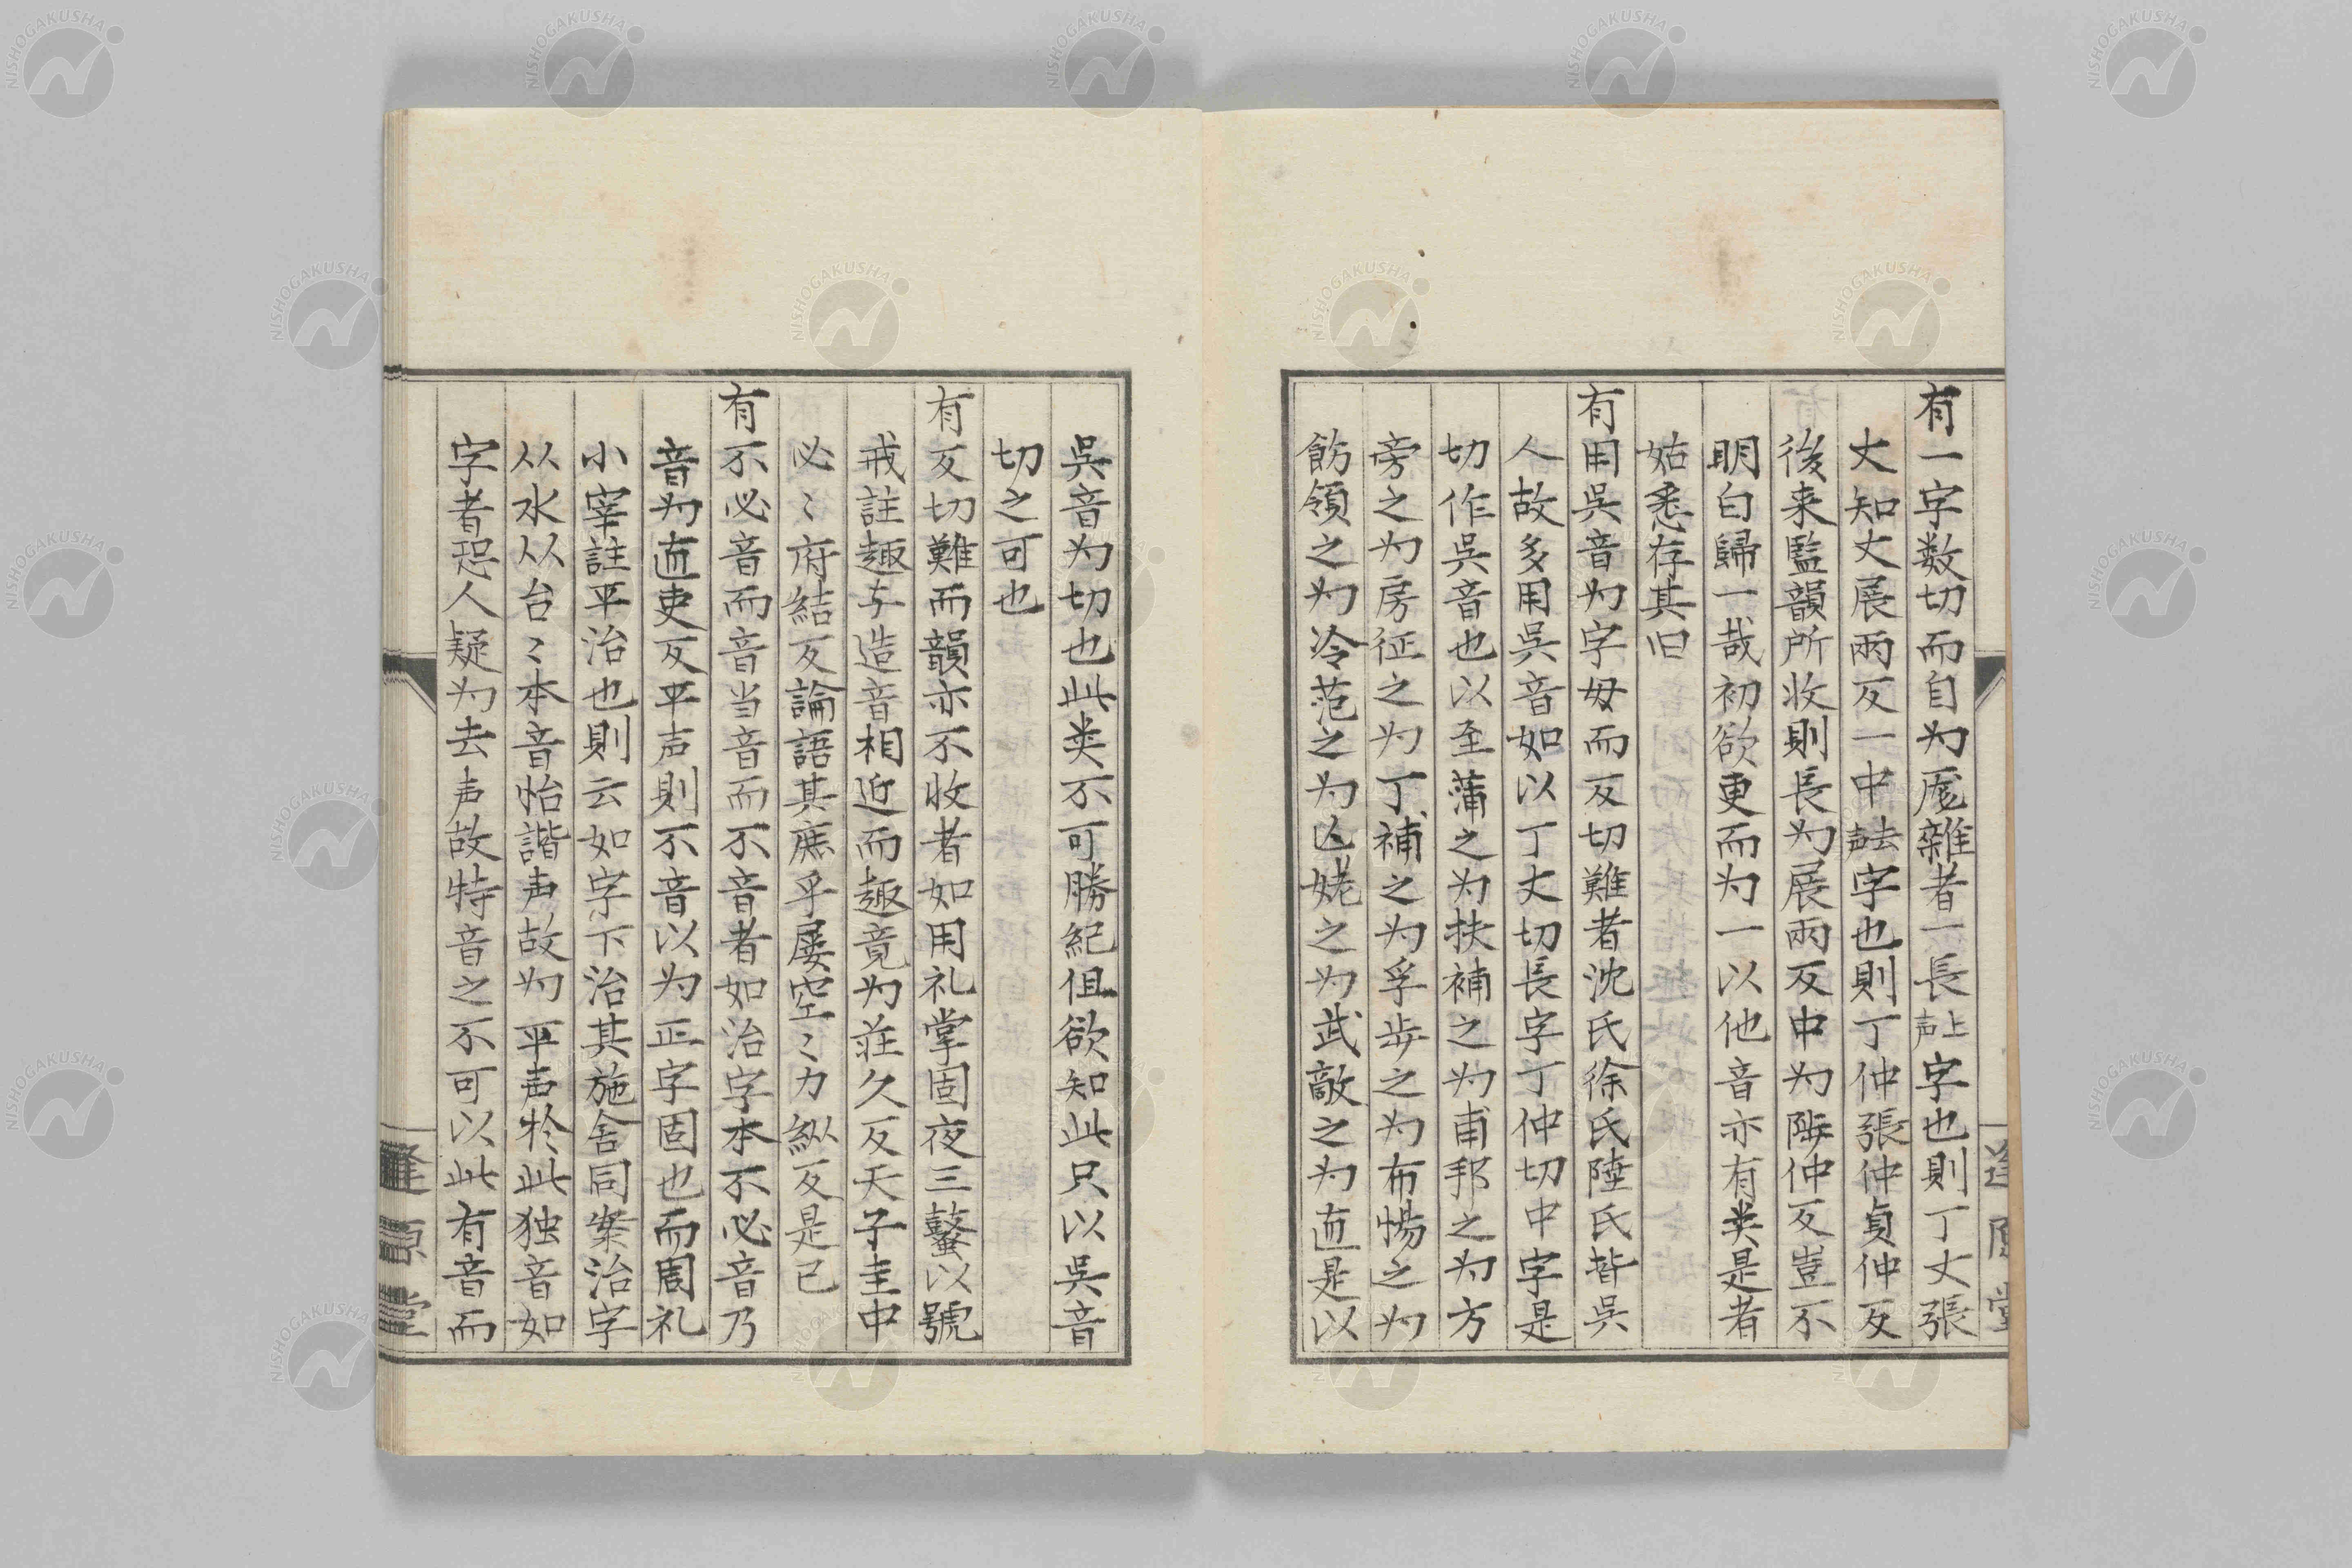 有一字数切而自为厖雜者一長上声字也則丁丈張
丈知丈展兩反一中去声字也則丁仲張仲貞仲反
後来監韻所收則長为展兩反中为陟仲反豈不
明白歸一哉初欲更而为一以他音亦有类是者
姑悉存其旧
有用吳音为字毋而反切難者沈氏徐氏陸氏皆吳
人故多用吳音如以丁丈切長字丁仲切中字是
切作吳音也以至蒲之为扶補之为甫邦之为方
旁之为房征之为丁補之为孚步之为布惕之为
飭領之为冷范之为亾姥之为武敵之为直是以
吳音为切也此类不可勝紀伹欲知此只以吳音
切之可也
有反切難而韻亦不收者如用礼掌固夜三鼜以號
戒註趣与造音相近而趣竟为莊久反天子圭中
必〻府結反論語其庶乎屡空〻力縱反是已
有不必音而音当音而不音者如治字本不必音乃
音为直吏反平声則不音以为正字固也而周礼
小宰註平治也則云如字下治其施舍同案治字
从水从台〻本音怡諧声故为平声於此独音如
字者恐人疑为去声故特音之不可以此有音而
逢原堂
NISHOGAKUSHA